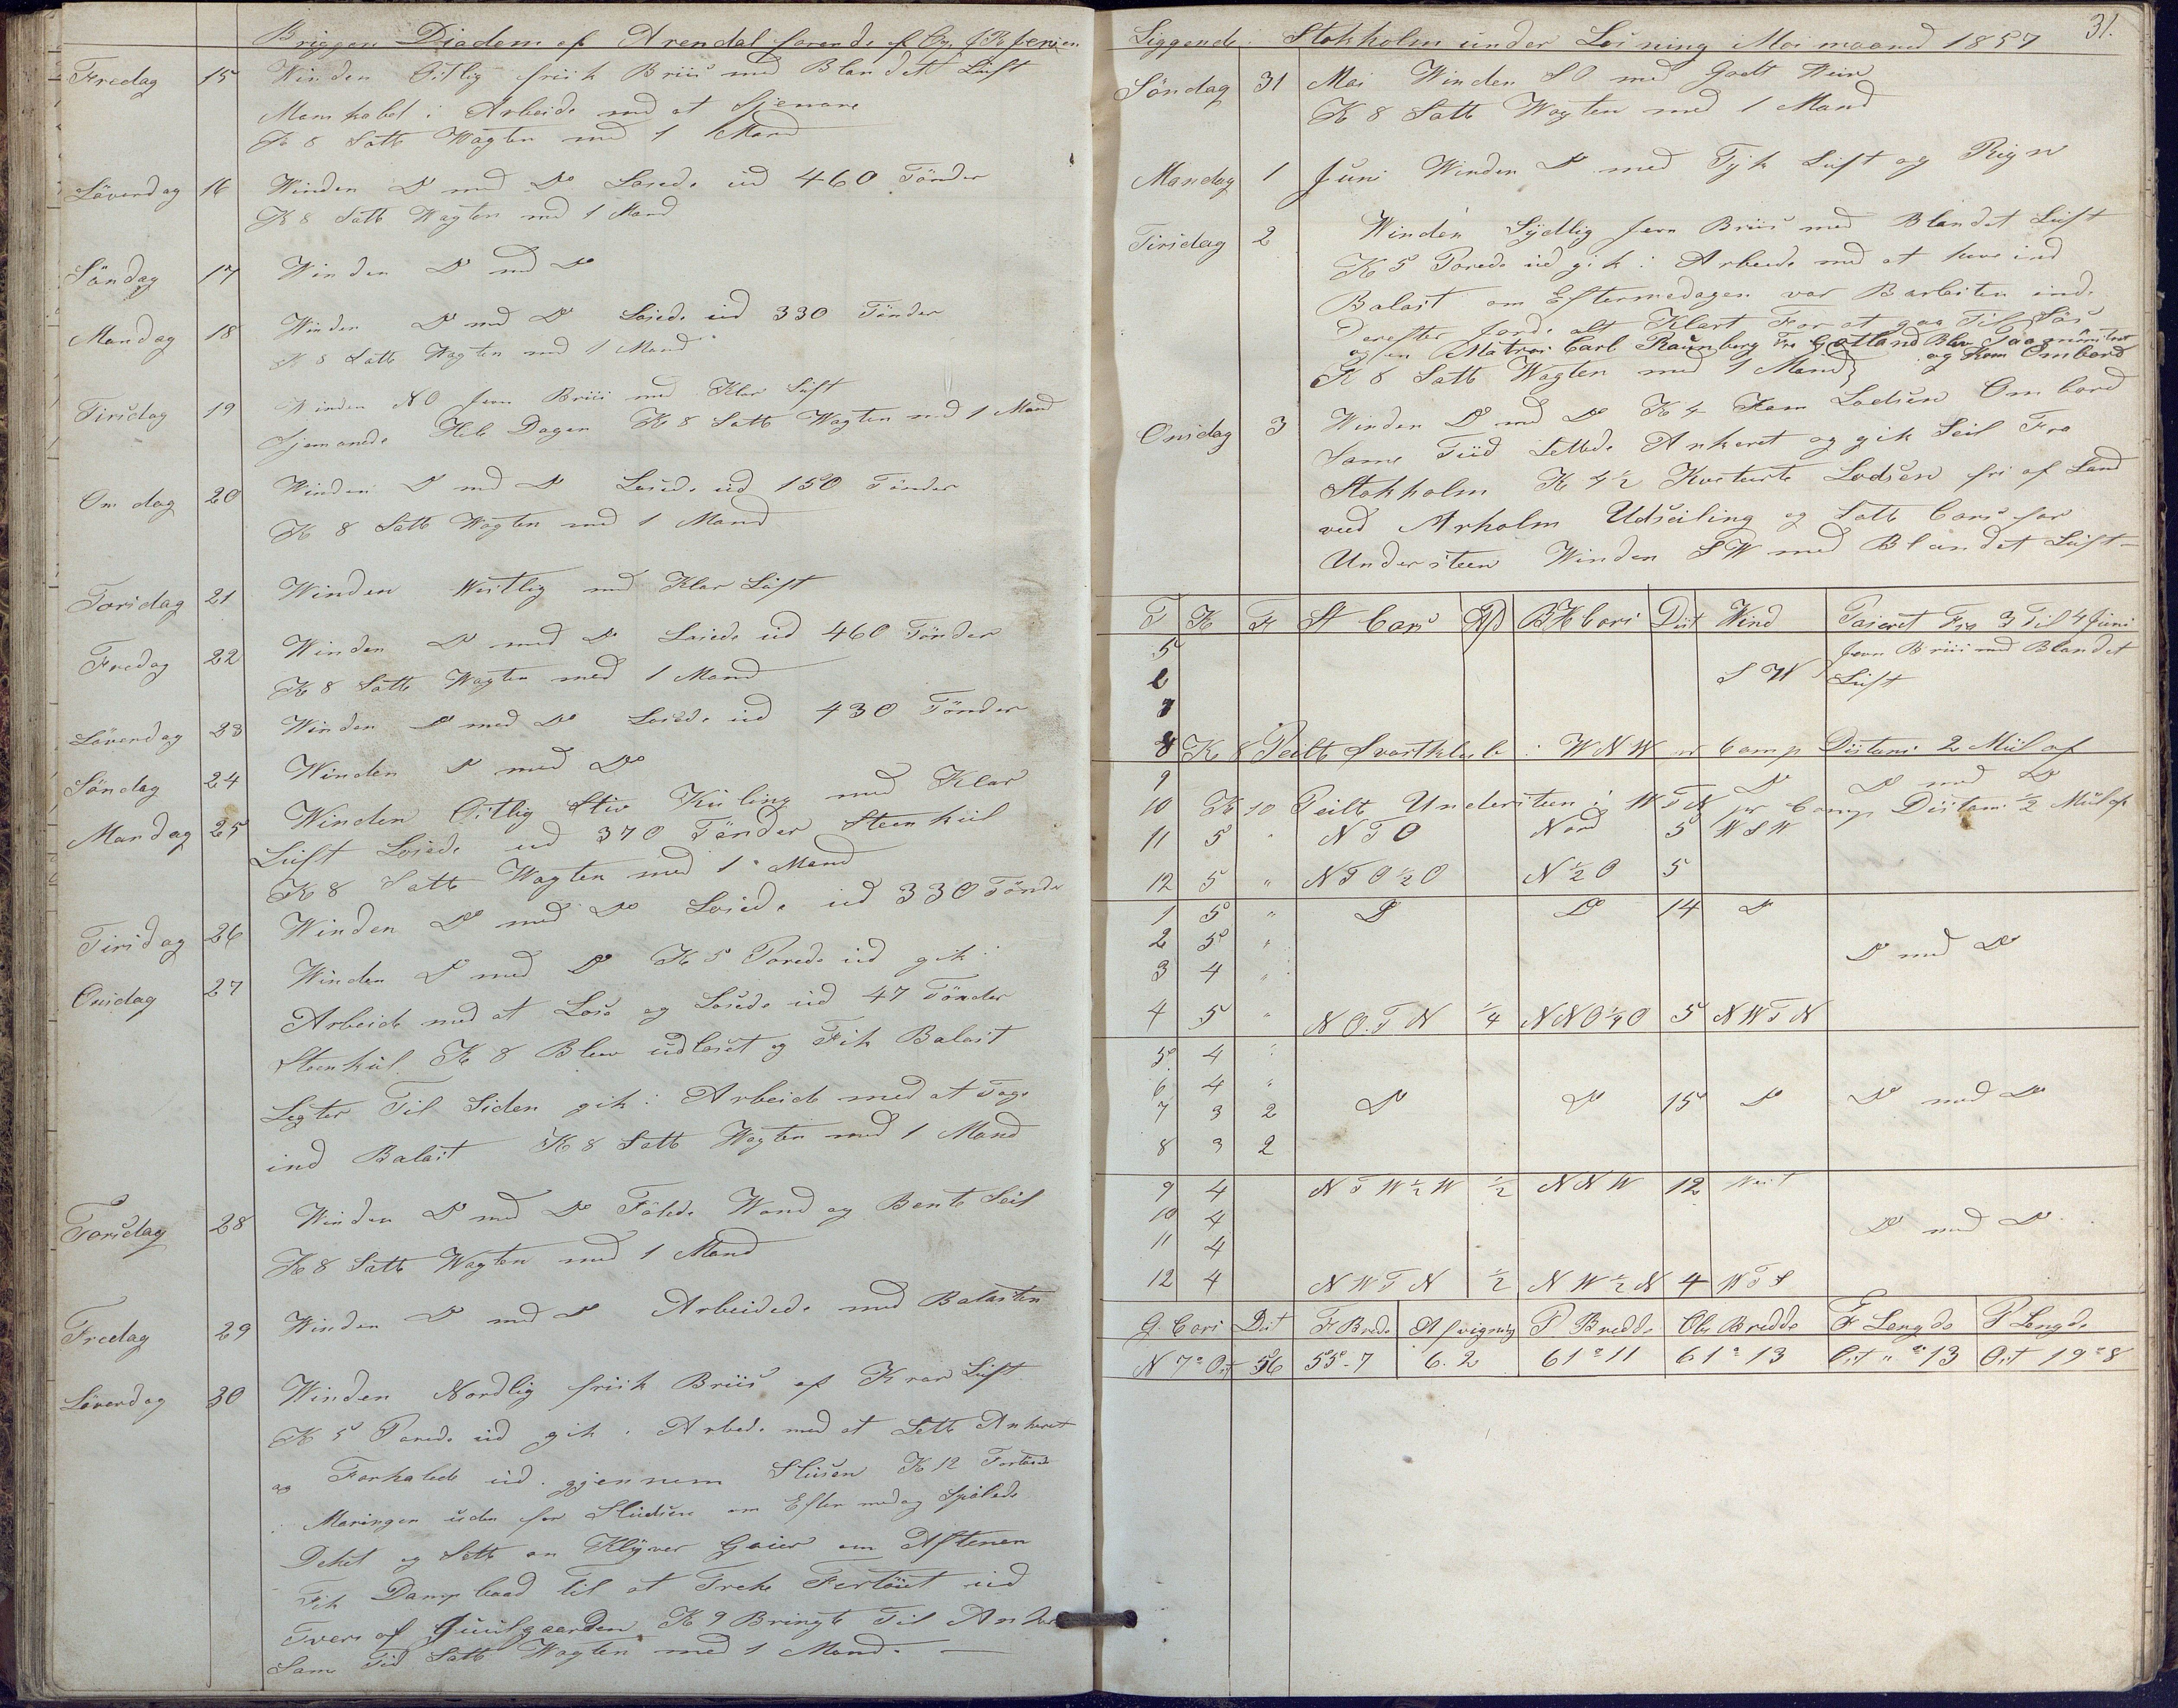 Briggen Diadem af Arendal førende af Cap J R Jensen
Fredag 15 Winden Østlig frisk Briis med Blandett Luft
Manskabet i Arbeide med at Sjemane
K 8 Satte Wagten med 1 Mand
Löverdag 16 Winden Do med Do Losede ud 460 Tönder
K 8 Satte Wagten med 1 Mand
Söndag 17 Winden Do med Do
Mandag 18 Winden Do med Do Losede ud 330 Tönder
K 8 Satte Wagten med 1 Mand
Tirsdag 19 Winden NO jevn Briis med Klar Luft
Sjemanede Hele Dagen K 8 Satte Wagten med 1 Mand
Onsdag 20 Winden Do med Do Losede ud 150 Tönder
K 8 Satte Wagten med 1 Mand
Torsdag 21 Winden Westlig med Klar Luft
Fredag 22 Winden Do med Do Losede ud 460 Tönder
K 8 Satte Wagten med 1 Mand
Löverdag 23 Winden Do med Do Losede ud 430 Tönder
Söndag 24 Winden Do med Do
Mandag 25 Winden Östlig Stiv Kuling med Klar
Luft Losede ud 370 Tönder Steenkul
K 8 Satte Wagten med 1 Mand
Tirsdag 26 Winden Do med Do Losede ud 330 Tönde
Onsdag 27 Winden Do med Do K 5 Porede ud gik i
Arbeide med at Lose og Losede ud 47 Tönder
Steenkul K 8 Blew udloset og Fik Balast
Legter Til Siden gik i Arbeide med at Tage
ind Balast K 8 Satte Wagten med 1 Mand
Torsdag 28 Winden Do med Do Wand og Bente Seil
K 8 Satte Wagten med 1 Mand
Fredag 29 Winden Do med Do Arbeidede med Balasten
Löverdag 30 Winden Nordlig frisk Briis af Krar Luft
K 5 Porede ud gik i Arbede med at Lette Ankeret
og Forhalede ud gjennem Slusen K 12 Fortöiede
i Moringen uden for Sludsen om Eftermedag Spölede
Deket og Satte an Klyver Gaier om Aftenen
Fik Dampbaad til at Treke Fertöiet ud
Tvers af K 9 Bringte Til Anker
Same Tid Satte Wagten med 1 Mand
31.
Liggende i Stokholm under Losning Mai maaned 1857
Söndag 31 Mai Winden SO med Godt Weir
K 8 Satte Wagten med 1 Mand
Mandag 1 Juni Winden Do med Tyk Luft og Regn
Tirsdag 2 Winden Sydlig jevn Briis med Blandet Luft
K 5 Porede ud gik i Arbeide med at have ind
Balast om Eftermedagen var Barlasten inde
Derefter Jorde alt Klart For at gaa Til Söes
og en Matros Carl Raunberg Fra Gotland Blev Paamönstret
K 8 Satte Wagten med 1 Mand og Kom Ombord
Onsdag 3 Winden Do med Do K 4 Kom Lodsen Om bord
Same Tiid Lettede Ankeret og gik Seil Fra
Stokholm K 4½ Kveterte Lodsen fri af Land
ved Arholm Udseiling og Satte Cors for
Understeen Winden SW med Blandet Luft
T K F St Cors Afd BH Cors Dist Wind Paseret Fra 3 Til 4 Juni
5 jevn Briis med Blandet
6 SW Luft
7
8 K 8 Peilte Svartklub i WNW pr Comp Distans 2 Miil af
9 Do Do med Do
10 K 10 Peilte Understeen i WTN pr Comp Distans ½ Miil af
11 5 " NTO Nord 5 WSW
12 5 " NTO½O N½O 5
1 5 " Do Do 14 Do
2 5 "
3 4 " Do med Do
4 5 " NO.TN ¼ NNO¼O 5 NWTN
5 4 "
6 4 "
7 3 2 Do Do 15 Do Do med Do
8 3 2
9 4 NTW½W ½ NNW 12 West
10 4 Do med Do
11 4
12 4 NWTN ½ NW½N 4 WTS
G. Cors Dist F Brede Afvigning P Bredde Obs Bredde F Lengde P Lengde
N 7° Ost 56 55-7 6.2 61°11 61°13 Ost "°13 Ost 19°8